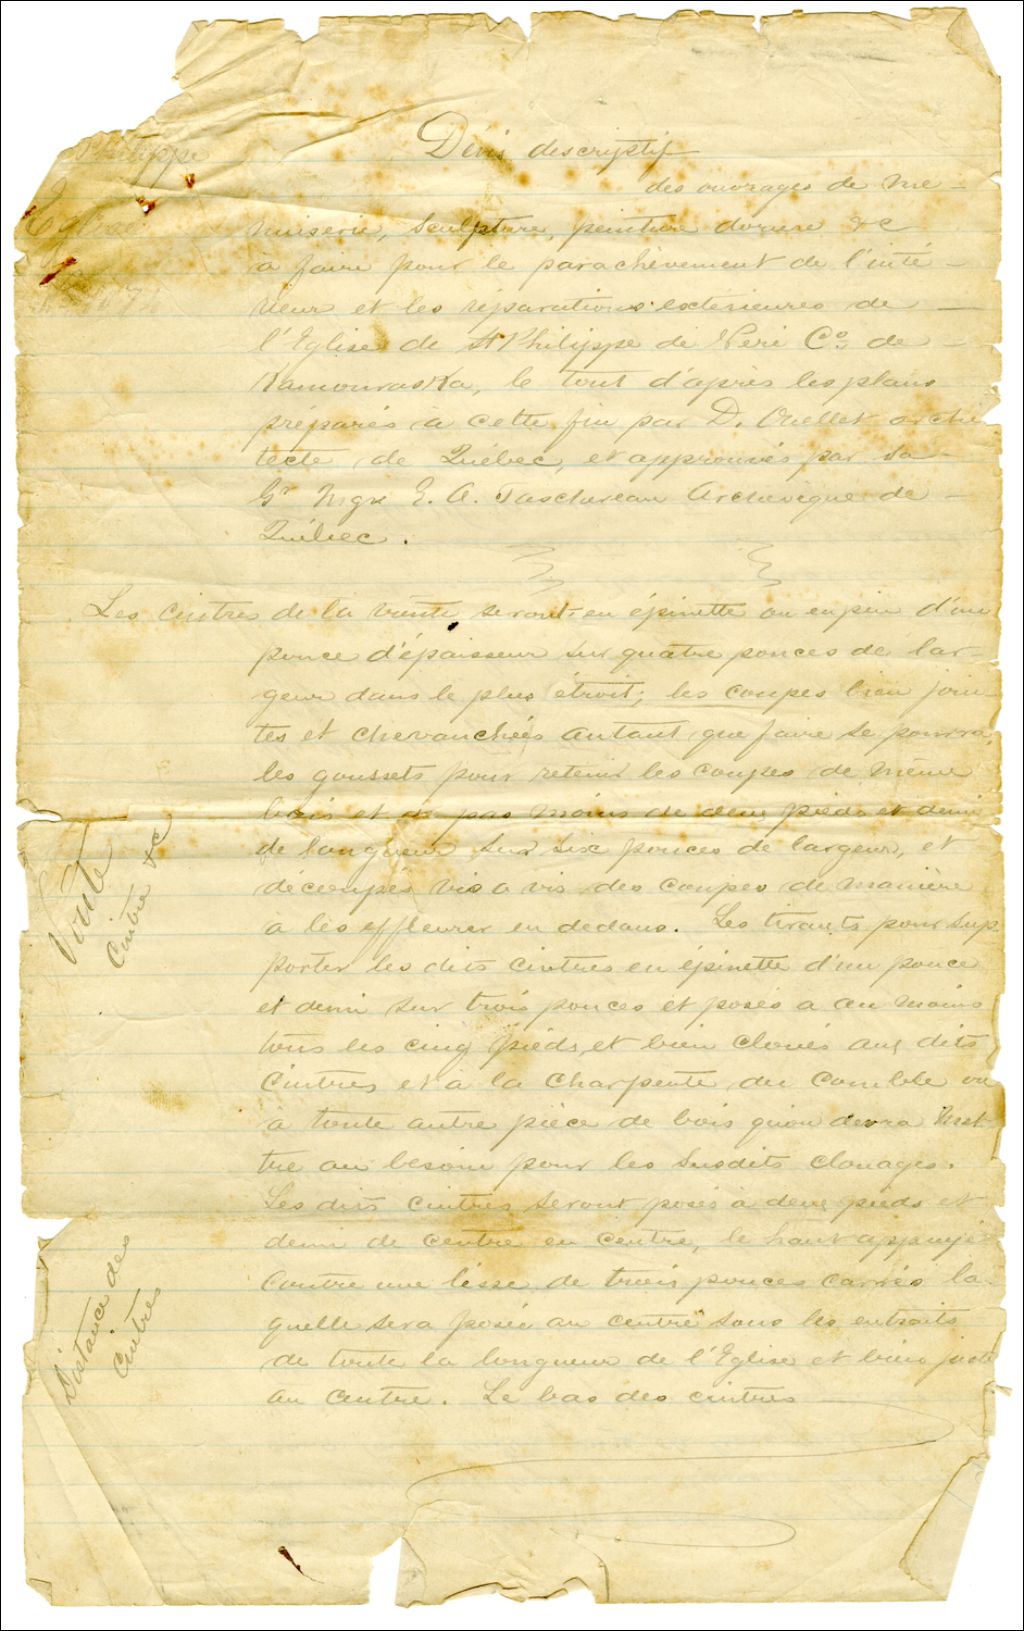 Philippe
Eglise
Dévis descriptif
des ouvrages de me-
nuiserie, sculpture, peinture dorure &c
a faire pour le parachèvement de l'inté-
rieur et les réparations extérieures de
l'Eglise de St Philippe de Néri Co. de
Kamouraska, le tout d'après les plans
préparés à cette fin par D. Ouellet archi
tecte de Québec, et approuvés par Sa
Gr Mgr E. A. Taschereau Archevêque de
Québec.
Les cintres de la voute seront en épinette ou en pin d'un
pouce d'épaisseur sur quatre pouces de lar-
geur dans le plus étroit; les coupes bien join-
tes et chevauchées autant que faire se pourra,
les goussets pour retenir les coupes de même
bois et de pas moins de deux pieds et demi
de longueur sur six pouces de largeur, et
découpés vis a vis des coupes de manière
a les effleurer en dedans. Les tirants pour sup-
porter les dits cintres en épinette d'un pouce
et demi sur trois pouces et posés a au moins
tous les cinq pieds, et bien cloués aux dits
cintres et à la charpente du comble ou
à toute autre pièce de bois qu'on devra met-
tre au besoin pour les susdits clouages.
Les dits cintres seront posés à deux pieds et
demi de centre en centre, le haut appuyé
contre une lisse de trois pouces carrés la-
quelle sera posée au centre sous les entraits
de toute la longueur de l'Eglise et bien juste
au centre. Le bas des cintres
Voute
Cintre &c
Distance des
Cintres